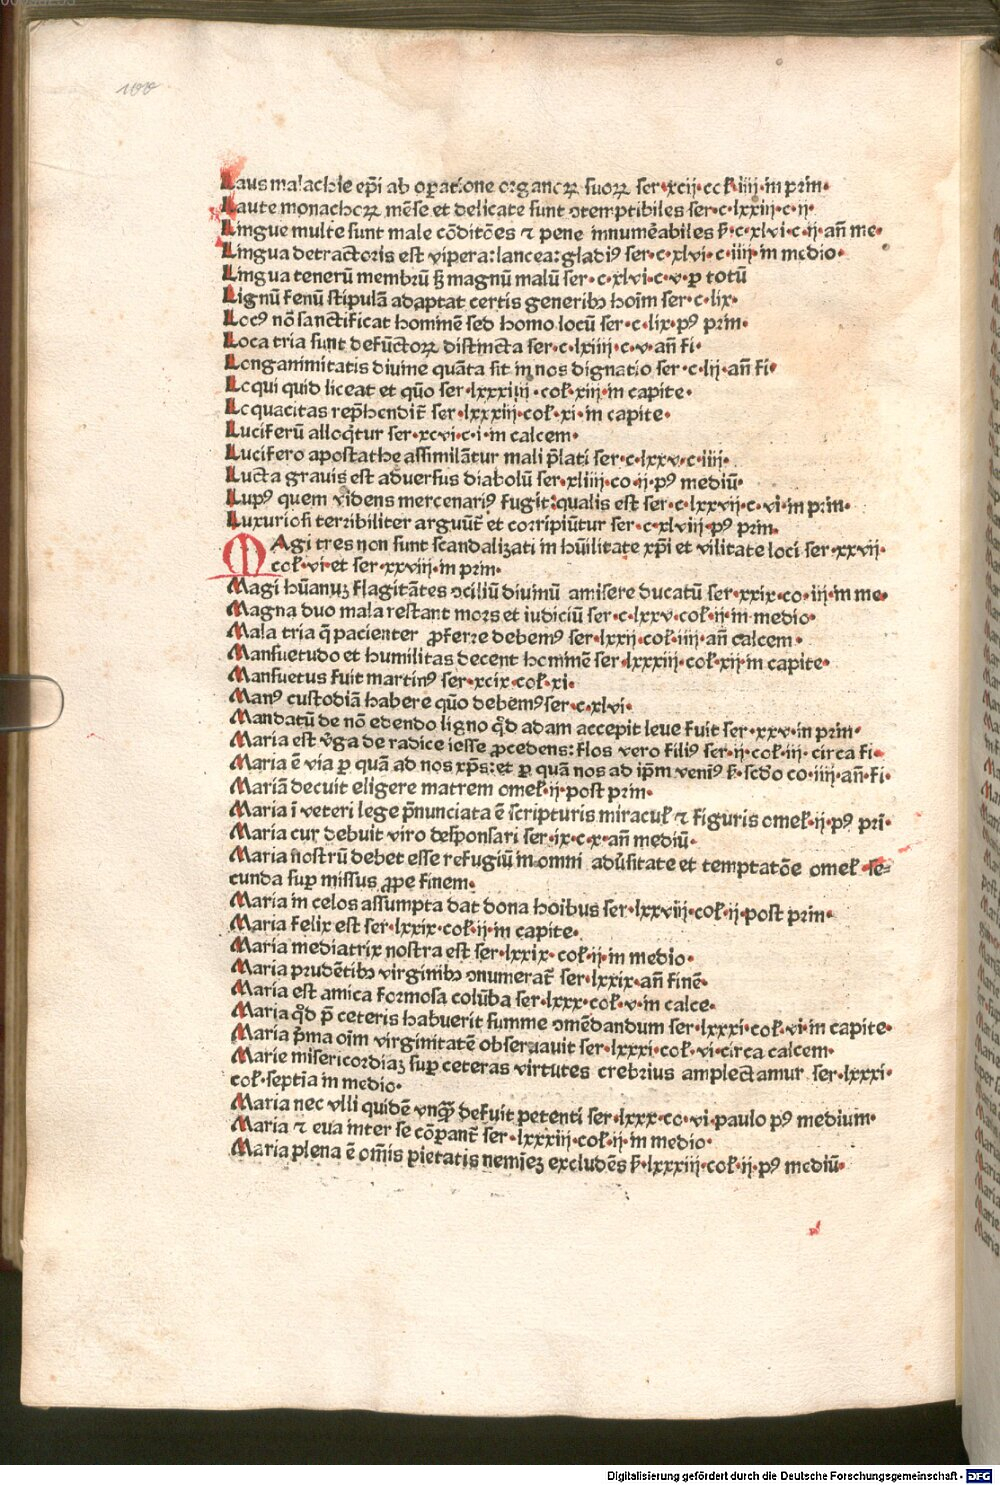 Laus malachie ep̄i ab oꝑatione organoꝝ suoꝝ ser·xcij·col̄·iiij·in prin·
Laute monachoꝝ mēse et delicate sunt ↄtemptibiles ser·c·lxxiij·c·ij·
Lingue multe sunt male cōditōes ⁊ pene innumēabiles s̄·c·xlvi·c·ij·añ me·
Lingua detractoris est vipera: lancea: gladiꝰ ser·c·xlvi·c·iiij·in medio·
Lingua tenerū membrū sꝫ magnū malū ser·c·xlvi·c·v·ꝑ totū
Lignū fenū stipulā adaptat certis generibꝫ hoīm ser·c·lix·
Locꝰ nō sanctificat hominē sed homo locū ser·c·lix·pꝰ prin·
Loca tria sunt defūctoꝝ distincta ser·c·lxiiij·c·v·añ fi·
Longanimitatis diuine quāta sit in nos dignatio ser·c·lij·añ fi·
Loqui quid liceat et quō ser·lxxxiiij·col̄·xiij·in capite·
Loquacitas rep̄hendit̄ ser·lxxxiij·col̄·xi·in capite·
Luciferū alloq̄tur ser·xcvi·c·i·in calcem·
Lucifero apostathe assimilātur mali p̄lati ser·c·lxxv·c·iiij·
Lucta grauis est aduersus diabolū ser·xliiij·co·ij·pꝰ mediū·
Lupꝰ quem videns mercenariꝰ fugit: qualis est ser·c·lxxvij·c·vi·in prin·
Luxuriosi terribiliter arguūt̄ et corripiūtur ser·c·xlviij·pꝰ prin·
MAgi tres non sunt scandalizati in hūilitate xp̄i et vilitate loci ser·xxvij·
col̄·vi·et ser·xxviij·in prin·
Magi hūanuꝫ flagitātes ↄciliū diuinū amisere ducatū ser·xxix·co·iij·in me·
Magna duo mala restant mors et iudiciū ser·c·lxxv·col̄·ij·in medio·
Mala tria q̄ pacienter ꝓferre debemꝰ ser·lxxij·col̄·iiij·añ calcem·
Mansuetudo et humilitas decent hominē ser·lxxxiij·col̄·xij·in capite·
Mansuetus fuit martinꝰ ser·xcix·col̄·xi·
Manꝰ custodiā habere quō debemꝰ ser·c·xlvi·
Mandatū de nō edendo ligno qd̄ adam accepit leue fuit ser·xxv·in prin·
Maria est v̄ga de radice iesse ꝓcedens: flos vero filiꝰ ser·ij·col̄·iij·circa fi·
Maria ē via ꝑ quā ad nos xp̄s: et ꝑ quā nos ad ip̄m veniꝰ s̄·scd̄o co·iiij·añ·fi·
Mariā decuit eligere matrem omel̄·ij·post prin·
Maria ī veteri lege p̄nunciata ē scripturis miracul̄ ⁊ figuris omel̄·ij·pꝰ pri·
Maria cur debuit viro desponsari ser·ix·c·x·añ mediū·
Maria nostrū debet esse refugiū in omni adūsitate et temptatōe omel̄·se-
cunda suꝑ missus ꝓpe finem·
Maria in celos assūmpta dat dona hoībus ser·lxxviij·col̄·ij·post prin·
Maria felix est ser·lxxix·col̄·ij·in capite·
Maria mediatrix nostra est ser·lxxix·col̄·ij·in medio·
Maria prudētibꝫ virginibꝫ ↄnumerat̄ ser·lxxix·añ finē·
Maria est amica formosa colūba ser·lxxx·col̄·v·in calce·
Maria qd̄ p̄ ceteris habuerit summe ↄmēdandum ser·lxxxi·col̄·vi·in capite·
Maria p̄ma oīm virginitatē obseruauit ser·lxxxi·col̄·vi·circa calcem·
Marie misericordiaꝫ suꝑ ceteras virtutes crebrius amplectamur ser·lxxxi·
col̄·septīa in medio·
Maria nec vlli quidē vnqꝫ̄ defuit petenti ser·lxxx·co·vi·paulo pꝰ medium·
Maria ⁊ eua inter se cōꝑant̄ ser·lxxxiij·col̄·ij·in medio·
Maria plena ē om̄is pietatis nemīeꝫ excludēs s̄·lxxxiij·col̄·ij·pꝰ mediū·
Digitalisierung gefördert durch die Deutsche Forschungsgemeinschaft - DFG